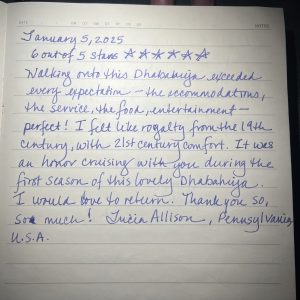 NOTES
January 5, 2025
6 out of 5 stars ☆☆☆☆☆☆
Walking onto this Dhabahuja exceeded
every expectation – the accommodations,
the service, the food, entertainment –
perfect! I felt like royalty from the 19th
century, with 21st century comfort. It was
an honor cruising with you during the
first season of this lovely Dhabahuja.
I would love to return. Thank you so,
so much! Tucia Allison, Pennsylvania,
U.S.A.